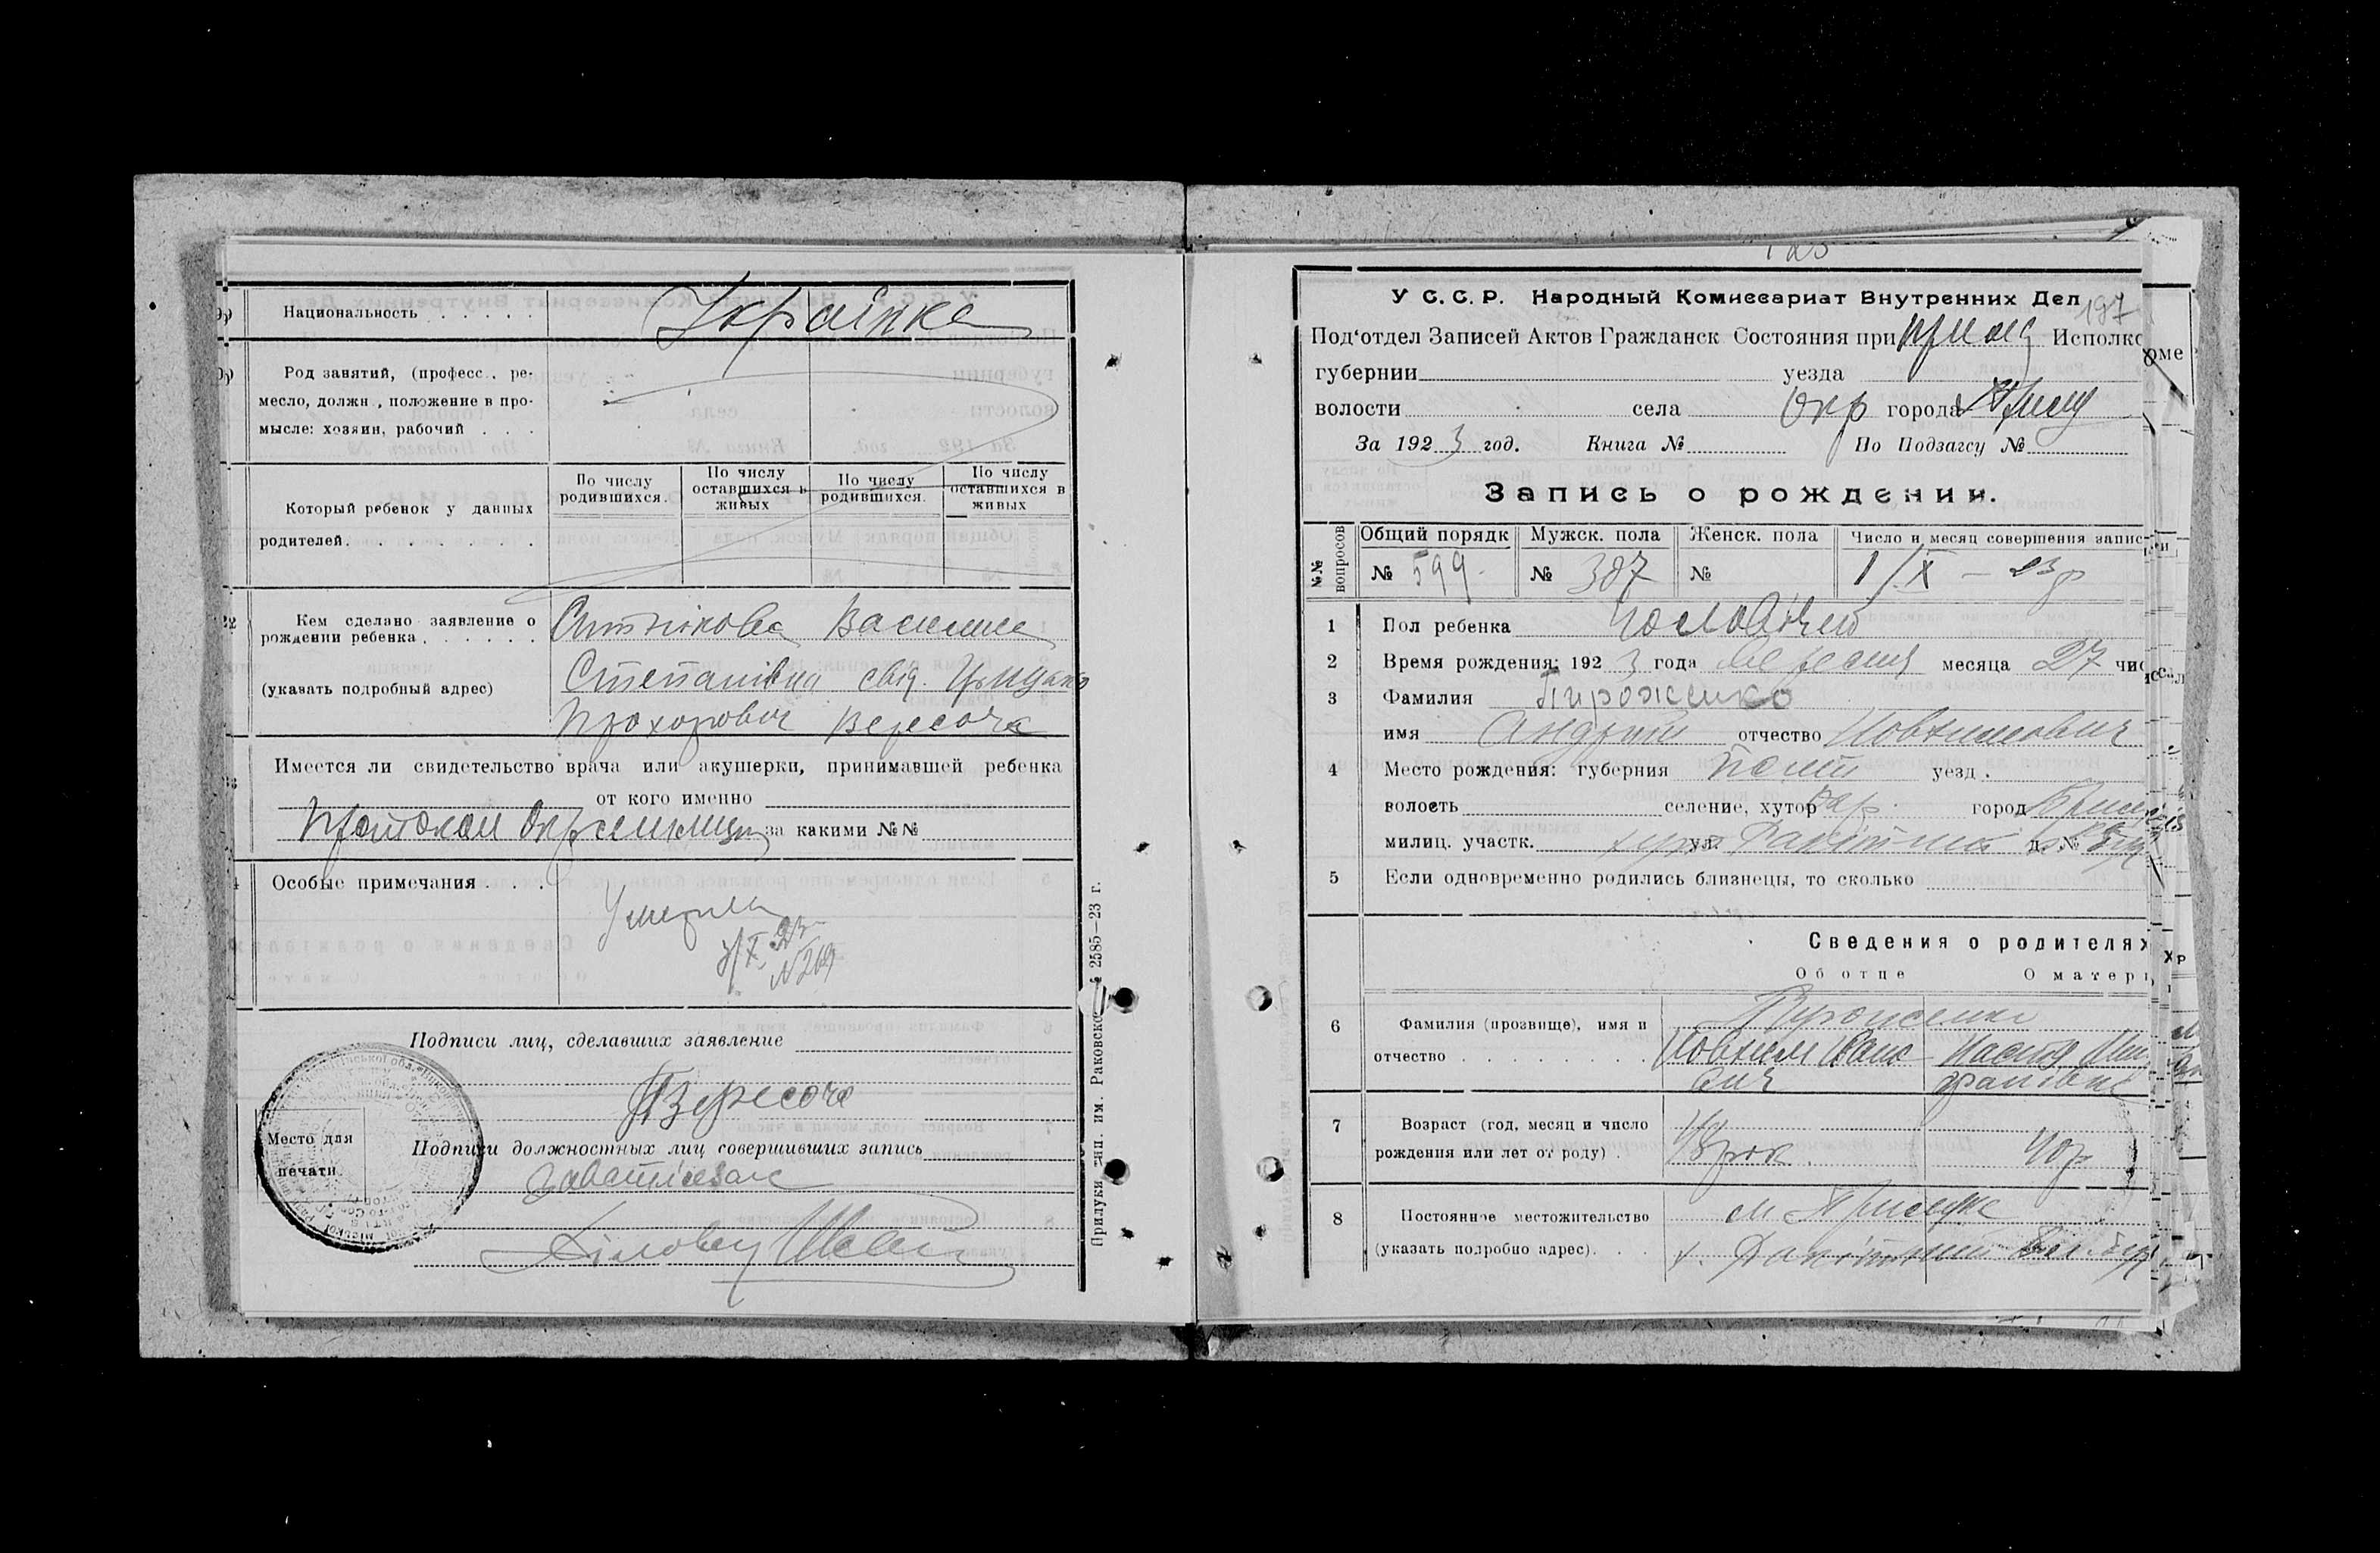 Национальность . . . . . Українка
Род занятий, (професс., ре-
месло, должн., положение в про-
мысле: хозяин, рабочий . . .
Который ребенок у данных
родителей . . . . . . .
По числу родившихся.
По числу оставшихся в живых
По числу родившихся.
По числу оставшихся в живых
Кем сделано заявление о
рождении ребенка . . . . . .
(указать подробный адрес)
Ситнікова Василина
Степанівна свід.
Прохорович Вересоча
Имеется ли свидетельство врача или акушерки, принимавшей ребенка
от кого именно
за какими №№
Особые примечания . . .
Умерла
3/X 23
№ 269
Подписи лиц, сделавших заявление
Вересоча
Место для
печати.
Подписи должностных лиц совершивших запись
Прилуки тип. им. Раковско 2585—23 г.
197
У С. С. Р. Народный Комиссариат Внутренних Дел
Под‘отдел Записей Актов Гражданск Состояния при Исполко
губернии уезда
волости села Окр города
За 1923 год. Книга № По Подзагсу №
Запись о рождении.
№№ вопросов
Общий порядк
№ 599
Мужск. пола
№ 307
Женск. пола
№
Число и месяц совершения запис
1/X — 23 р
1 Пол ребенка чоловічий
2 Время рождения: 1923 года вересня месяца 27 чис
3 Фамилия Пироженко
имя Андрій отчество Йовхимович
4 Место рождения: губерния Полт уезд .
волость селение, хутор город
милиц. участк. ул. д. №
5 Если одновременно родились близнецы, то сколько
Сведения о родителях
Об отце О матери
6 Фамилия (прозвище), имя и
отчество . . . . . . . .
Пироженки
Йовхим Івано
вич
Настя
7 Возраст (год, месяц и число
рождения или лет от роду) .
48 рок. 40 р
8 Постоянное местожительство
(указать подробно адрес). . .
м. Прилука